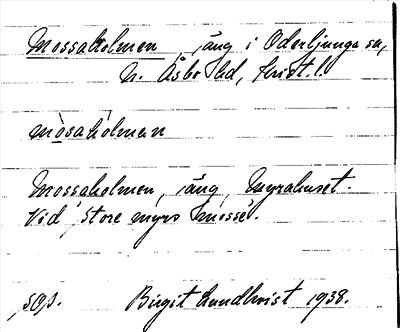 Mossaholmen, äng i Oderljunga sn,
N. Åsbo hd, Krist. l.
mòsahòlmen
Mossaholmen, äng, Myrahuset.
Vid "store myrs mosse".
sgs. Birgit Lundkvist 1938.